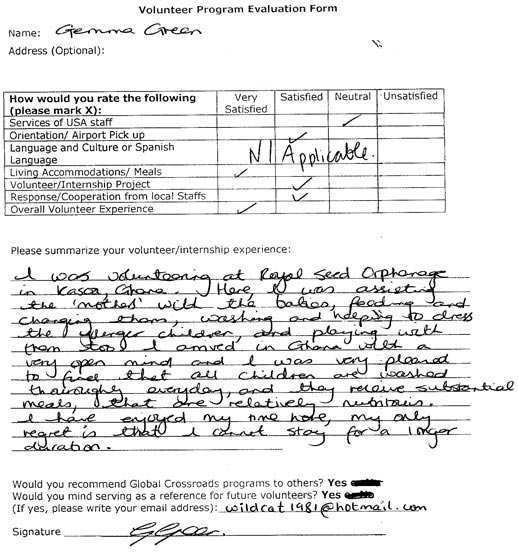 Volunteer Program Evaluation Form
Name: Gemma Green
Address (Optional):
How would you rate the following (please mark X): Very Satisfied Satisfied Neutral Unsatisfied
Services of USA staff ✓
Orientation/ Airport Pick up ✓
Language and Culture or Spanish Language N/Applicable.
Living Accommodations/ Meals ✓
Volunteer/Internship Project ✓
Response/Cooperation from local Staffs ✓
Overall Volunteer Experience ✓
Please summarize your volunteer/internship experience:
I was volunteering at Royal Seed Orphanage
in Kasoa, Ghana. Here, I was assisting
the 'mothers' with the babies, feeding and
changing them, washing and helping to dress
the younger children, and playing with
them too! I arrived in Ghana with a
very open mind and I was very pleased
to find that all children are washed
thoroughly everyday, and they receive substantial
meals, that are relatively nutritious.
I have enjoyed my time here, my only
regret is that I cannot stay for a longer
duration.
Would you recommend Global Crossroads programs to others? Yes
Would you mind serving as a reference for future volunteers? Yes
(If yes, please write your email address): wildcat1981@hotmail.com
Signature GGreen